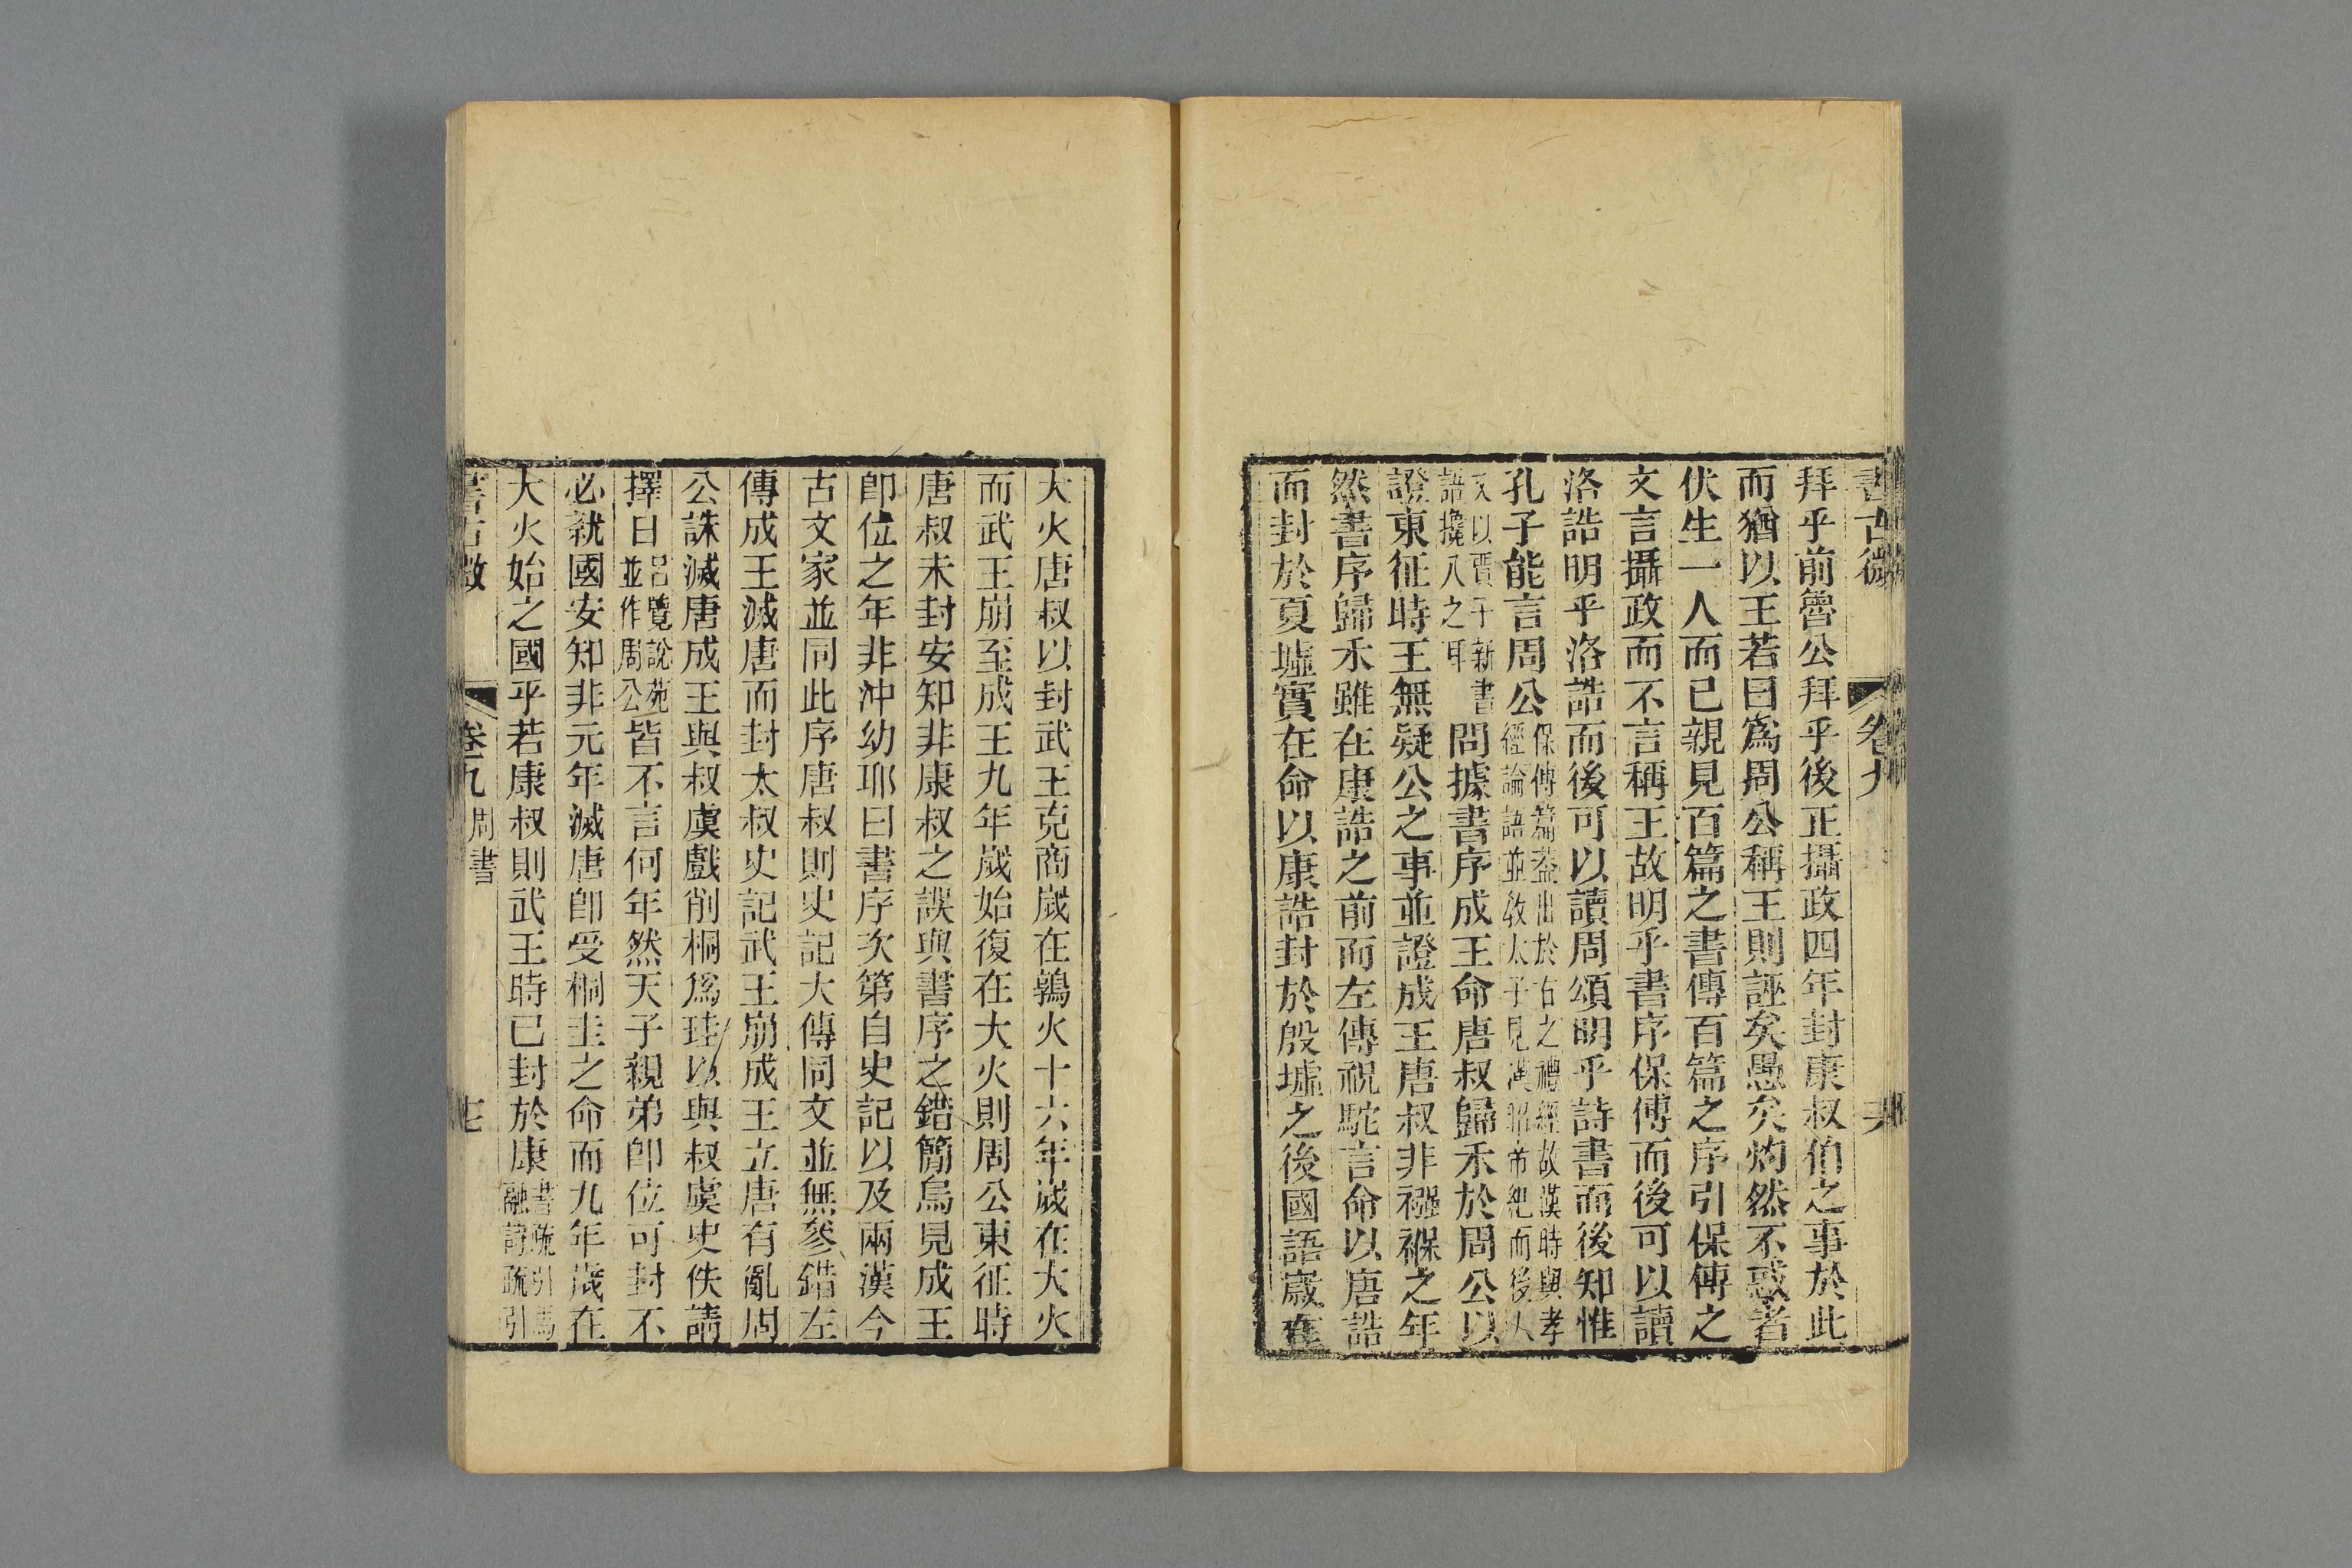 書古微 卷九
拜乎前魯公拜乎後正攝政四年封康叔伯之事於此
而猶以王若曰爲周公稱王則誣矣愚矣灼然不惑者
伏生一人而已親見百篇之書傳百篇之序引保傅之
文言攝政而不言稱王故明乎書序保傅而後可以讀
洛誥明乎洛誥而後可以讀周頌明乎詩書而後知惟
孔子能言周公保傅篇葢出於古之禮經故漢時與孝
經論語並敎太子見漢昭帝紀而後人
又以賈子新書
語攙入之耳
問據書序成王命唐叔歸禾於周公以
證東征時王無疑公之事並證成王唐叔非襁褓之年
然書序歸禾雖在康誥之前而左傳祝鮀言命以唐誥
而封於夏墟實在命以康誥封於殷墟之後國語嵗在
大火唐叔以封武王克商嵗在鶉火十六年嵗在大火
而武王崩至成王九年嵗始復在大火則周公東征時
唐叔未封安知非康叔之誤與書序之錯簡烏見成王
卽位之年非冲幼耶曰書序次第自史記以及兩漢今
古文家並同此序唐叔則史記大傳同文並無參錯左
傳成王滅唐而封太叔史記武王崩成王立唐有亂周
公誅滅唐成王與叔虞戲削桐爲珪以與叔虞史佚請
擇日呂覽說苑
並作周公皆不言何年然天子親弟卽位可封不
必就國安知非元年滅唐卽受桐圭之命而九年嵗在
大火始之國乎若康叔則武王時已封於康書疏引馬
融詩疏引
書古微 卷九 周書